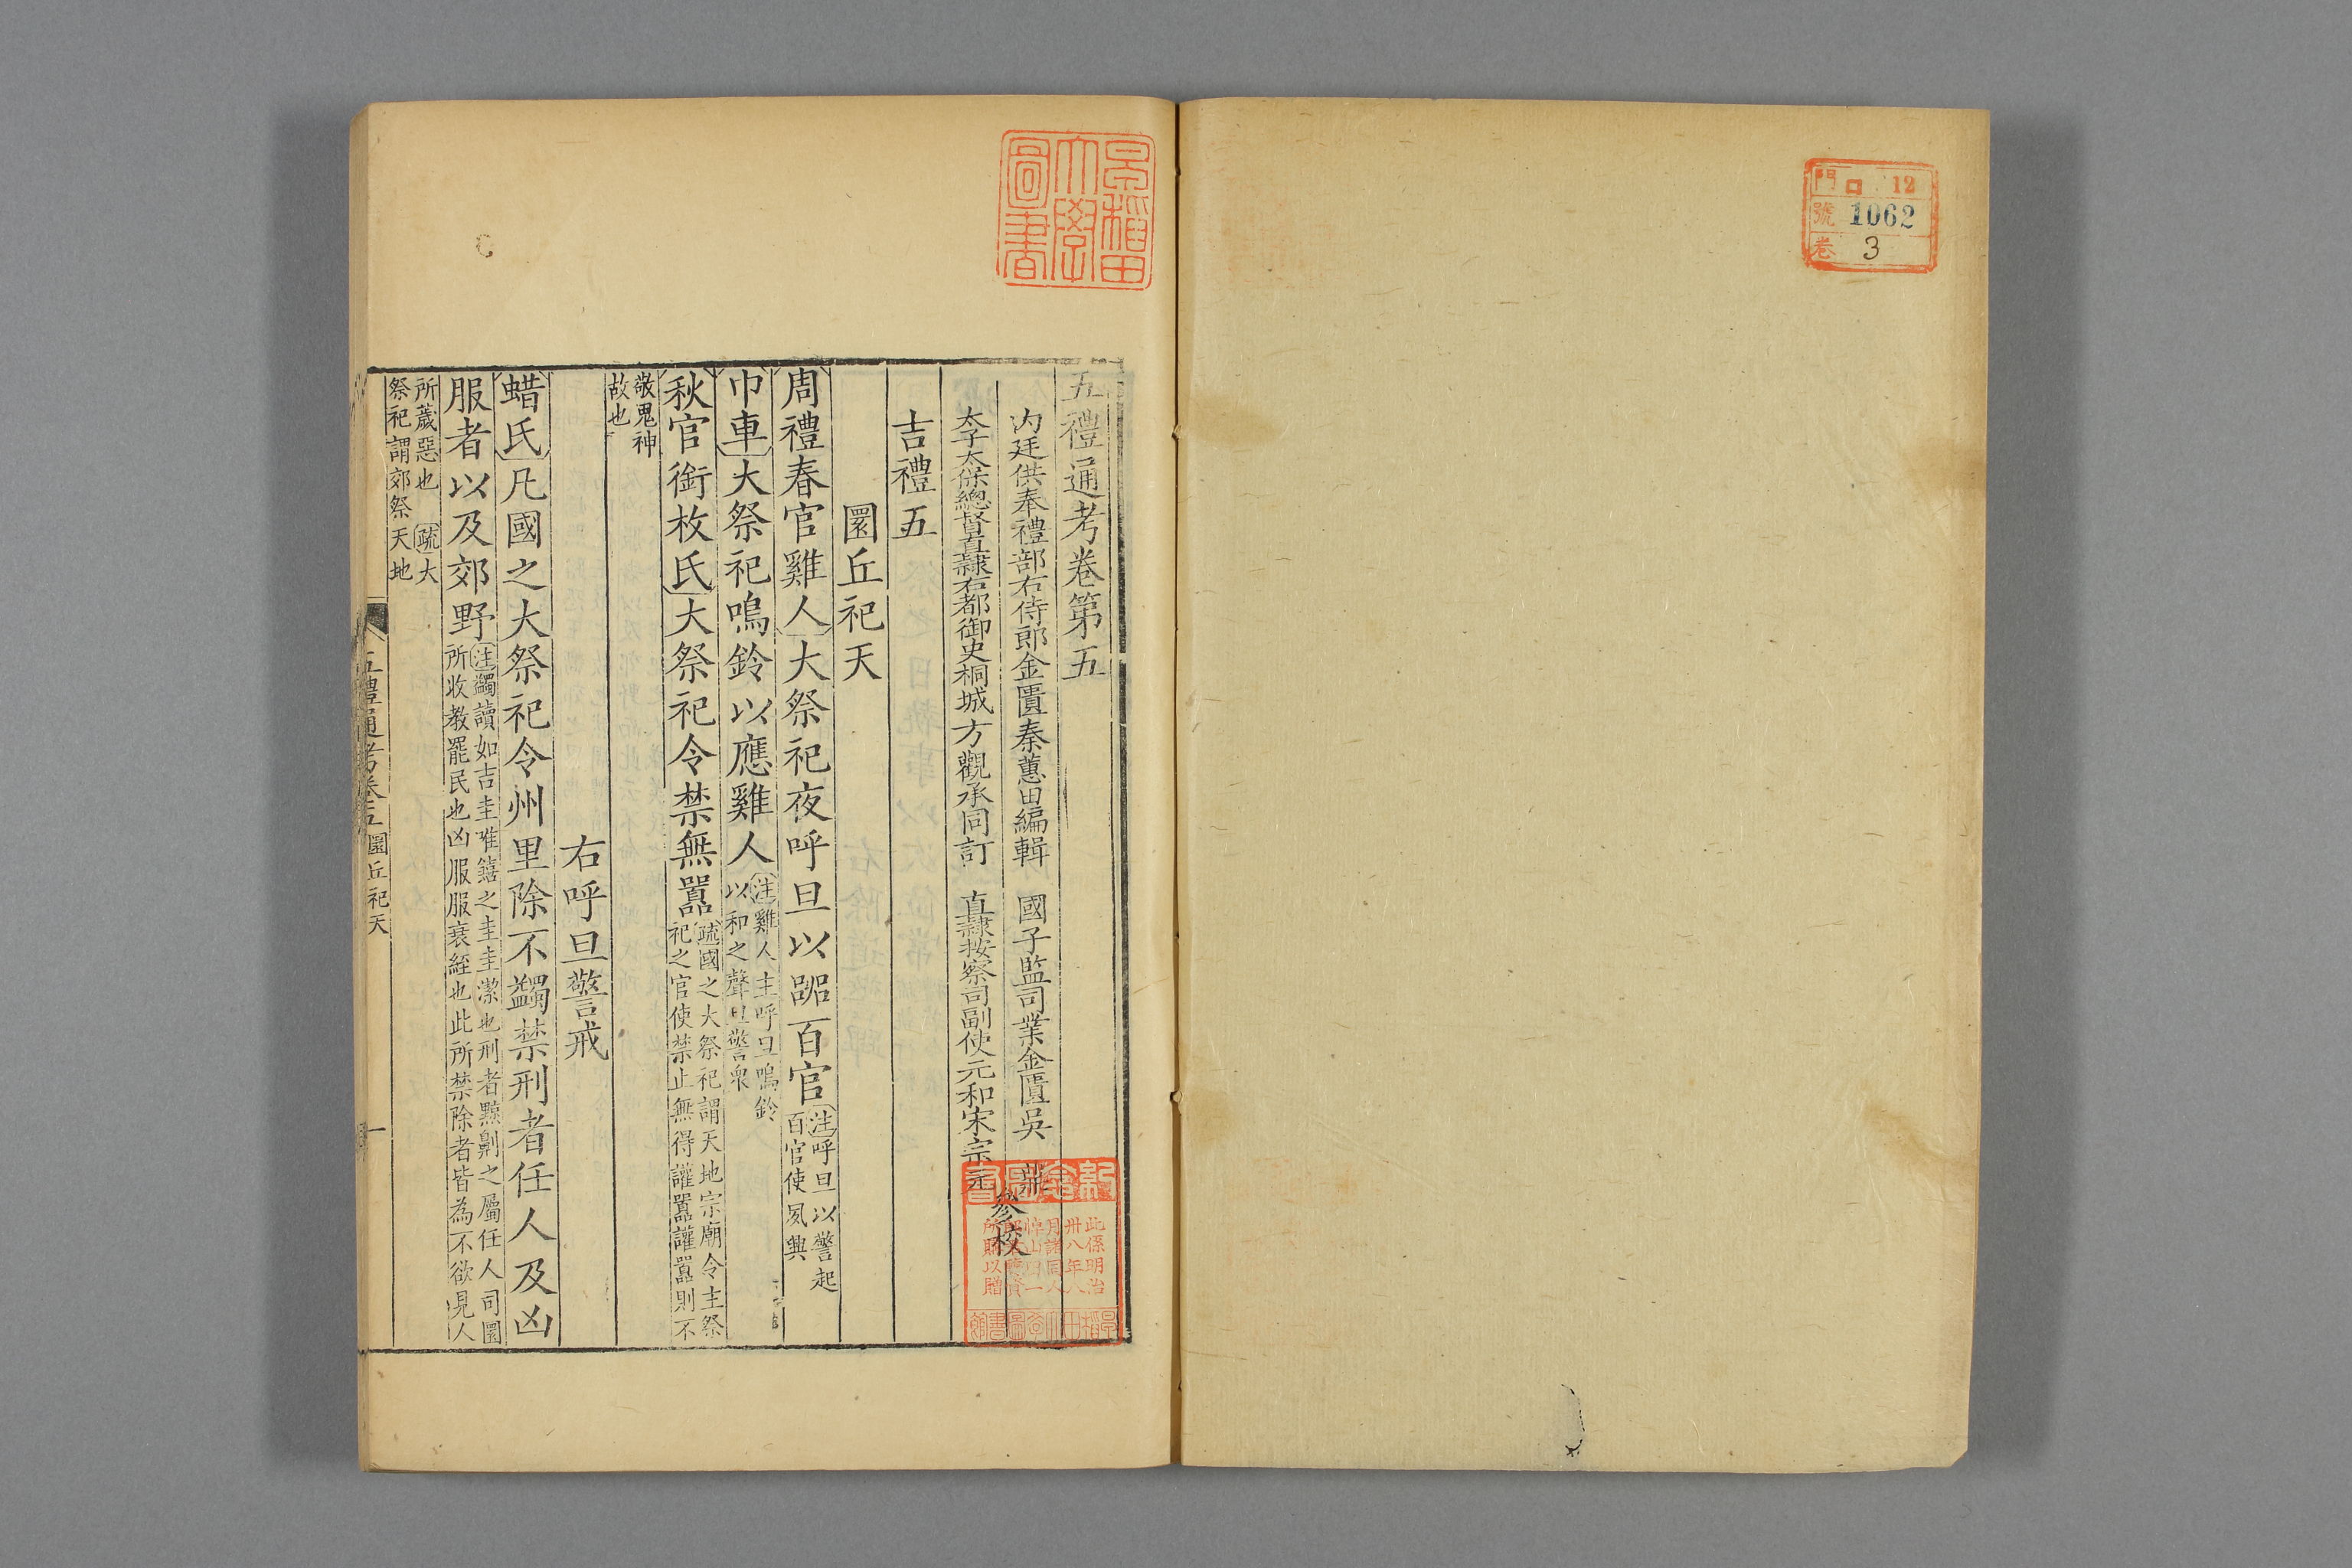 門 ロ 12
號 1062
卷 3
早稻田
大學
圖書
五禮通考卷第五
內廷供奉禮部右侍郎金匱秦蕙田編輯 國子監司業金匱吳鼎
太子太保總督直隸右都御史桐城方觀承同訂 直隸按察司副使元和宋宗元
參校
吉禮五
圜丘祀天
周禮春官雞人大祭祀夜呼旦以嘂百官注呼旦以警起百官使夙興
巾車大祭祀鳴鈴以應雞人注雞人主呼旦鳴鈴以和之聲旦警衆
秋官銜枚氏大祭祀令禁無嚻疏國之大祭祀謂天地宗廟令主祭祀之官使禁止無得讙嚻讙嚻則不
敬鬼神故也
右呼旦警戒
蜡氏凡國之大祭祀令州里除不蠲禁刑者任人及凶
服者以及郊野注蠲讀如吉圭惟饎之圭圭潔也刑者黥劓之屬任人司圜所收教罷民也凶服服衰絰也此所禁除者皆為不欲見人
所薉惡也 疏大祭祀謂郊祭天地
五禮通考卷五 圜丘祀天 一
此係明治
卅八年八
月諸同人
所以贈
早稻田大學圖書館